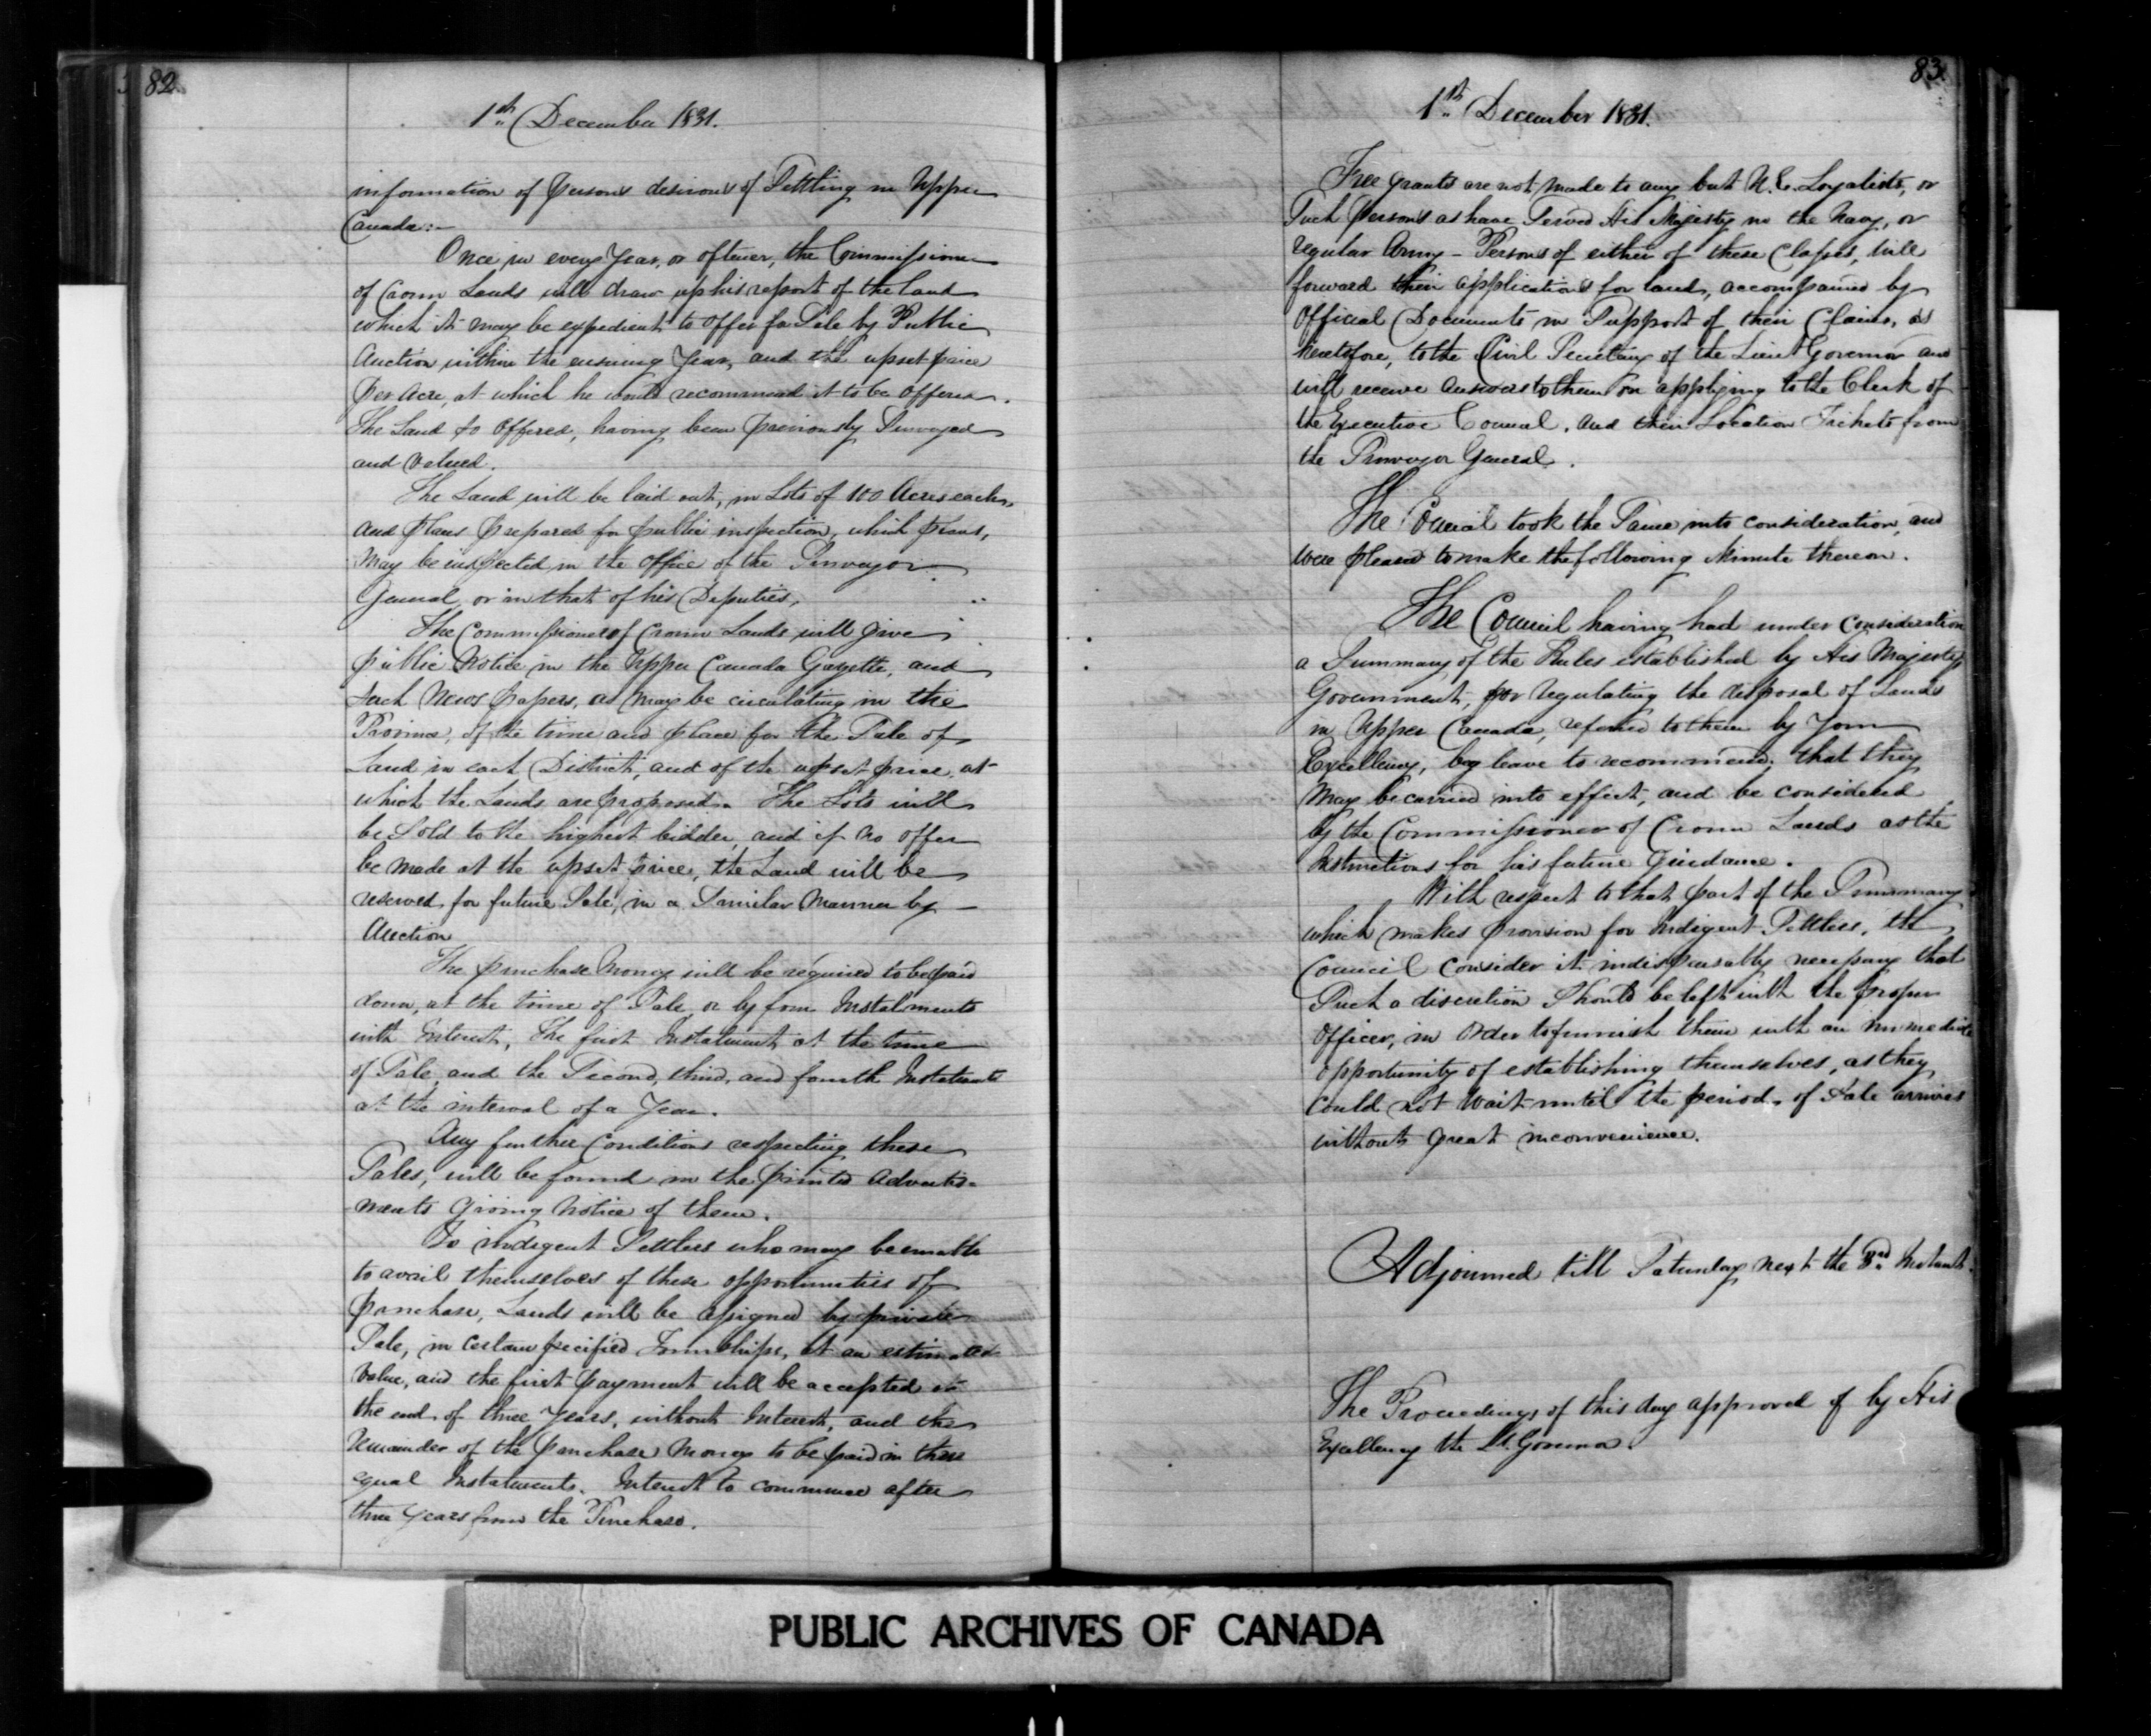 82
1st December 1831.
information of Persons desirous of Settling in Upper
Canada:-
Once in every Year, or oftener, the Commissioner
of Crown Lands will draw up his report of the land
which it may be expedient to offer for Sale by Public
Auction within the ensuing Year, and the upset price
per Acre, at which he would recommend it to be offered.
The Land so offered, having been previously Surveyed
and valued.
The Land will be laid out, in Lots of 100 Acres each,
and plans prepared for public inspection, which plans,
may be inspected in the Office of the Surveyor
General, or in that of his Deputies,
The Commissioner of Crown Lands will give
public Notice in the Upper Canada Gazette, and
such News papers, as may be circulating in the
Province, of the time and place for the Sale of
Land in each District, and of the upset price, at
which the Lands are proposed. The Lots will
be Sold to the highest bidder, and if no offer
be made at the upset price, the Land will be
reserved for future Sale, in a Similar Manner by
Auction
The purchase Money will be required to be paid
down, at the time of Sale, or by four Instalments
with Interest, The first Instalment at the time
of Sale, and the Second, third, and fourth Instalments
at the interval of a Year.
Any further Conditions respecting these
Sales, will be found in the printed Advertise-
ments giving Notice of them.
To indigent Settlers who may be unable
to avail themselves of these opportunities of
purchase, Lands will be assigned by private
Sale, in certain specified Townships, at an estimated
value, and the first payment will be accepted at
the end of three Years, without Interest, and the
remainder of the purchase Money to be paid in three
equal Instalments. Interest to commence after
three years from the Purchase.
83.
1st December 1831.
Free grants are not made to any but U.E. Loyalists, or
Such persons as have Served His Majesty in the Navy, or
regular Army - Persons of either of these Classes, will
forward their applications for land, accompanied by
Official Documents in Support of their Claims, as
heretofore, to the Civil Secretary of the Lieut Governor and
will receive answers to them on applying to the Clerk of
the Executive Council, and their Location Tickets from
the Surveyor General.
The Council took the Same into consideration, and
were pleased to make the following Minute thereon.
The Council having had under Consideration
a Summary of the Rules established by His Majesty's
Government, for regulating the disposal of Lands
in Upper Canada, referred to them by Your
Excellency, beg leave to recommend, that they
may be carried into effect, and be considered
by the Commissioner of Crown Lands as the
Instructions for his future Guidance.
With respect to that part of the Summary
which makes provision for Indigent Settlers, the
Council consider it indispensably necessary that
Such a discretion Should be left with the proper
Officer, in Order to furnish them with an immediate
opportunity of establishing themselves, as they
could not wait until the period of Sale arrives
without great inconvenience.
Adjourned till Saturday next the 3rd Instant.
The Proceedings of this day approved of by His
Excellency the Lt. Governor.
PUBLIC ARCHIVES OF CANADA